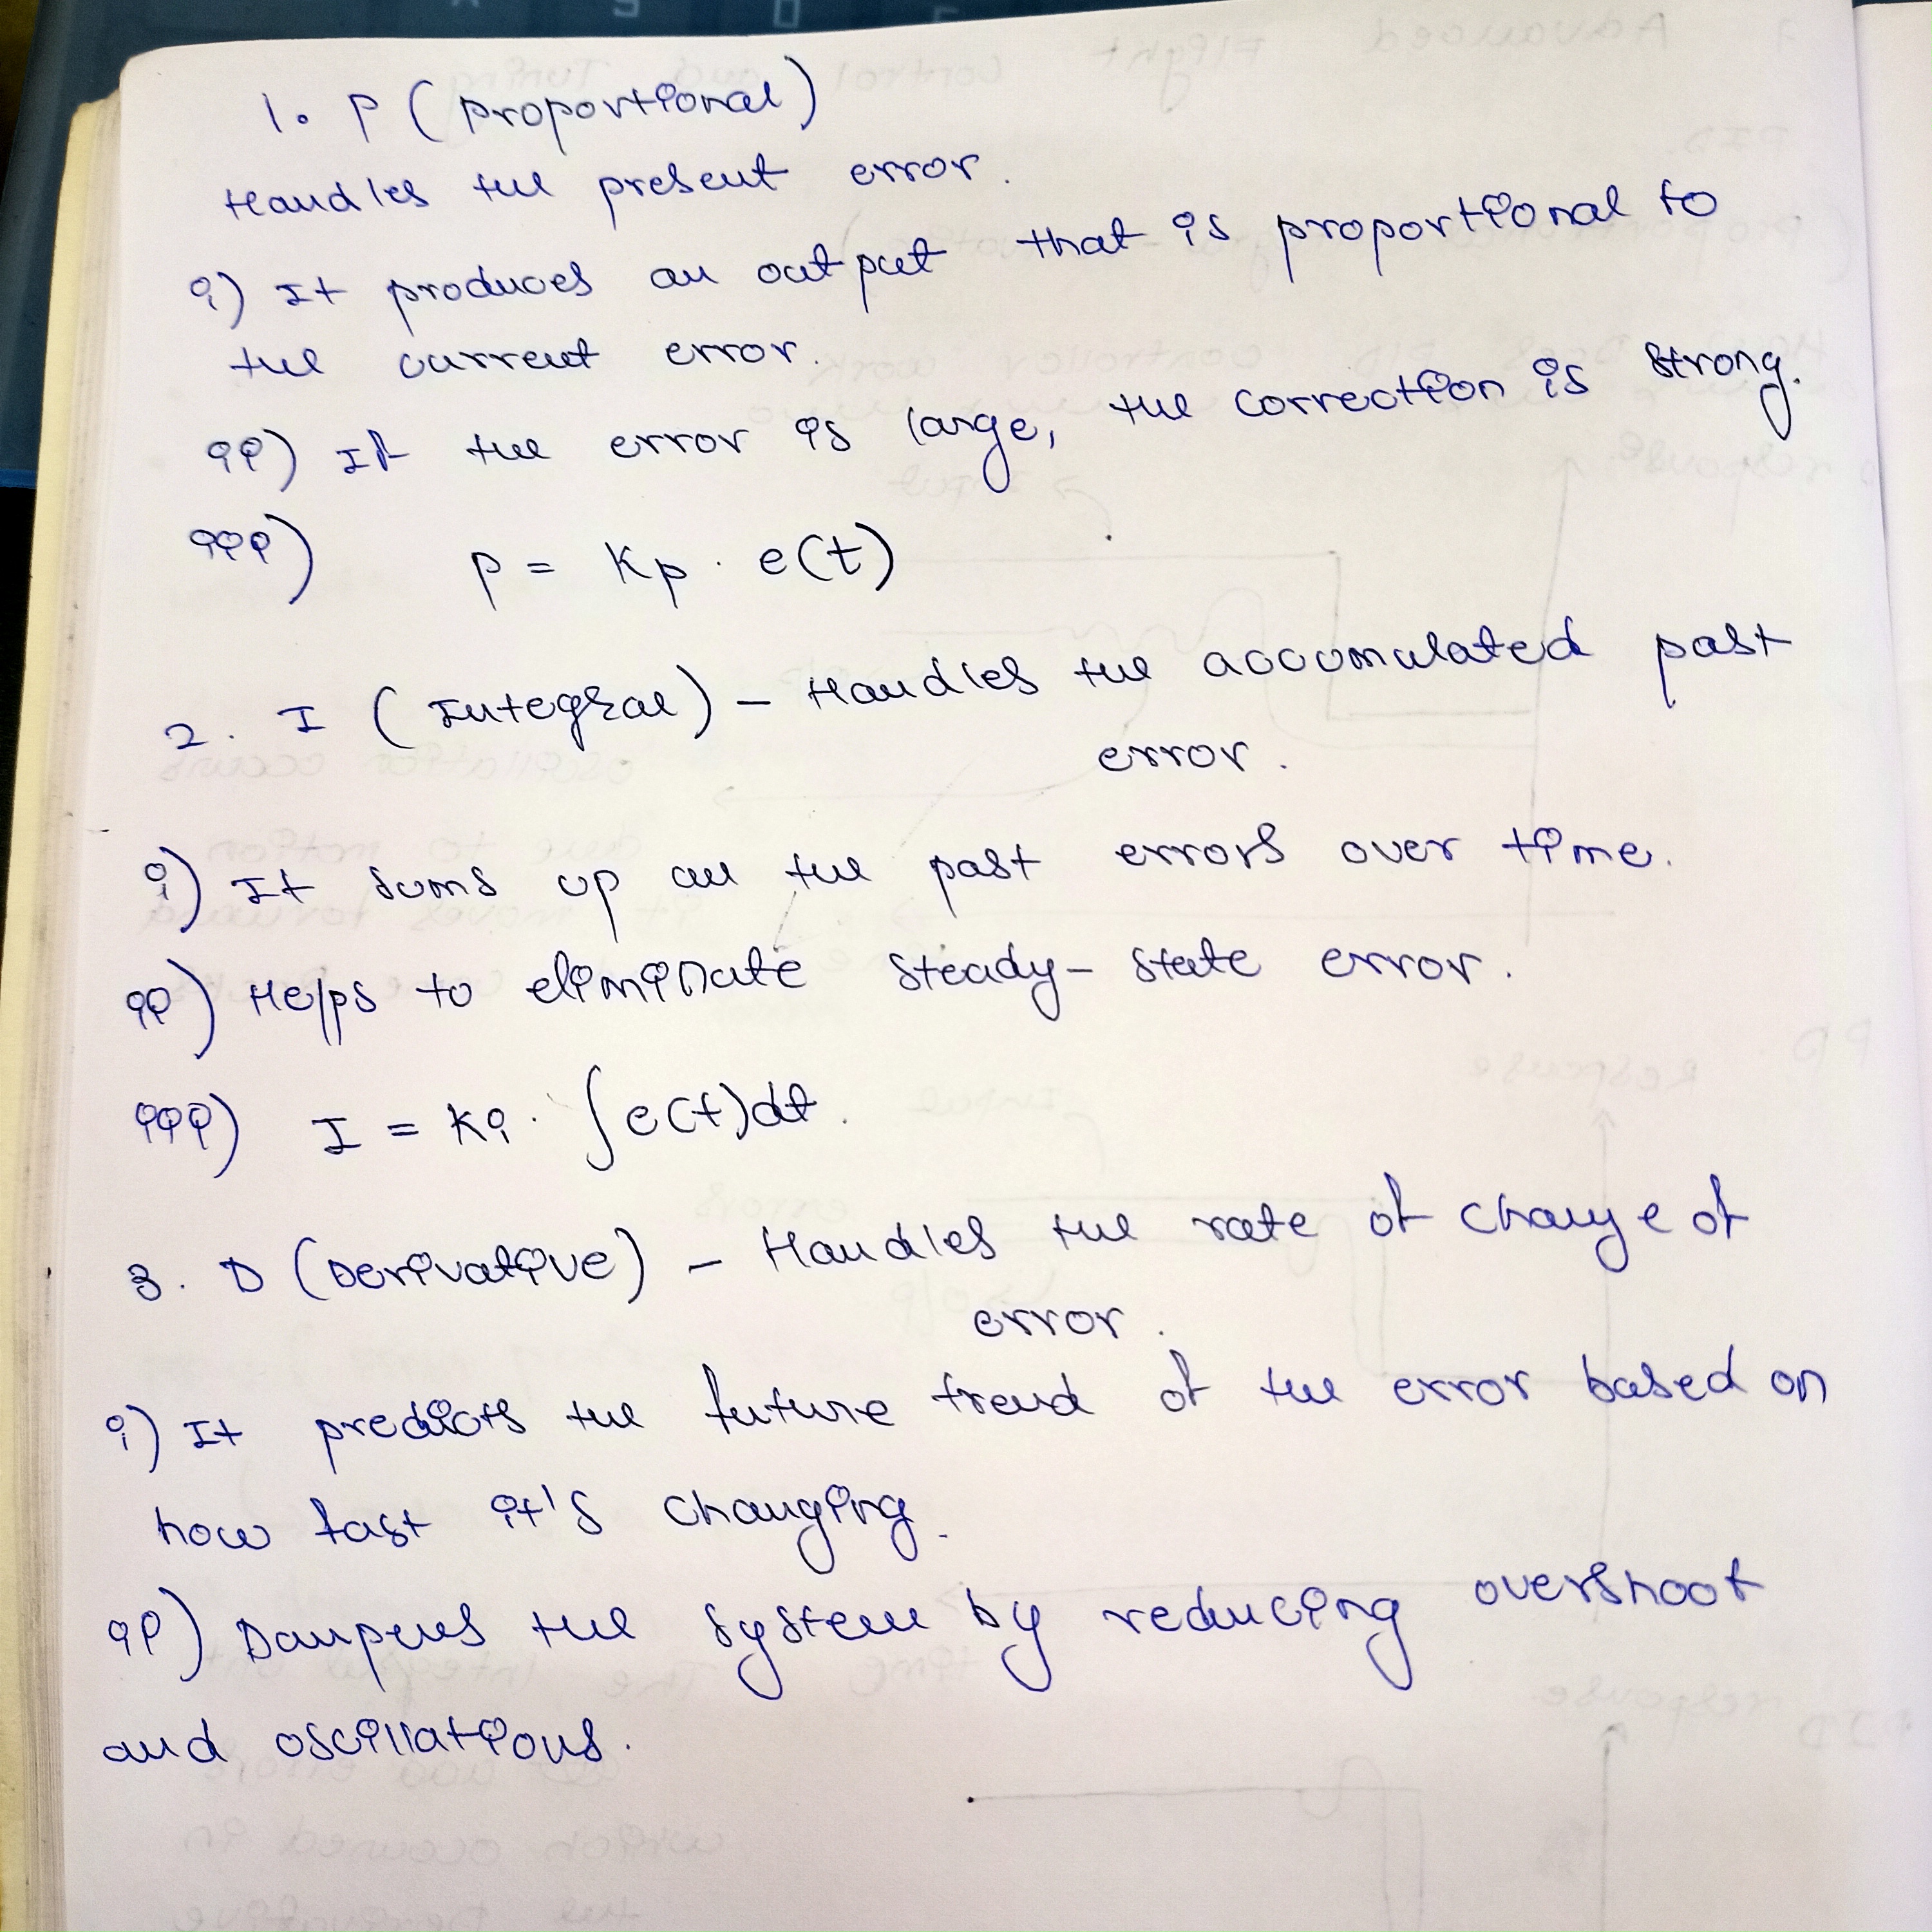 1. P (proportional)
Handles the present error.
i) It produces an output that is proportional to
the current error.
ii) If the error is large, the correction is strong.
iii) P = Kp . e(t)
2. I (Integral) - Handles the accomulated past
error.
i) It sums up all the past errors over time.
ii) Helps to eliminate steady-state error.
iii) I = Ki . ∫e(t)dt.
3. D (Derivative) - Handles the rate of change of
error.
i) It predicts the future trend of the error based on
how fast it's changing.
ii) Dampens the system by reducing overshoot
and oscillations.